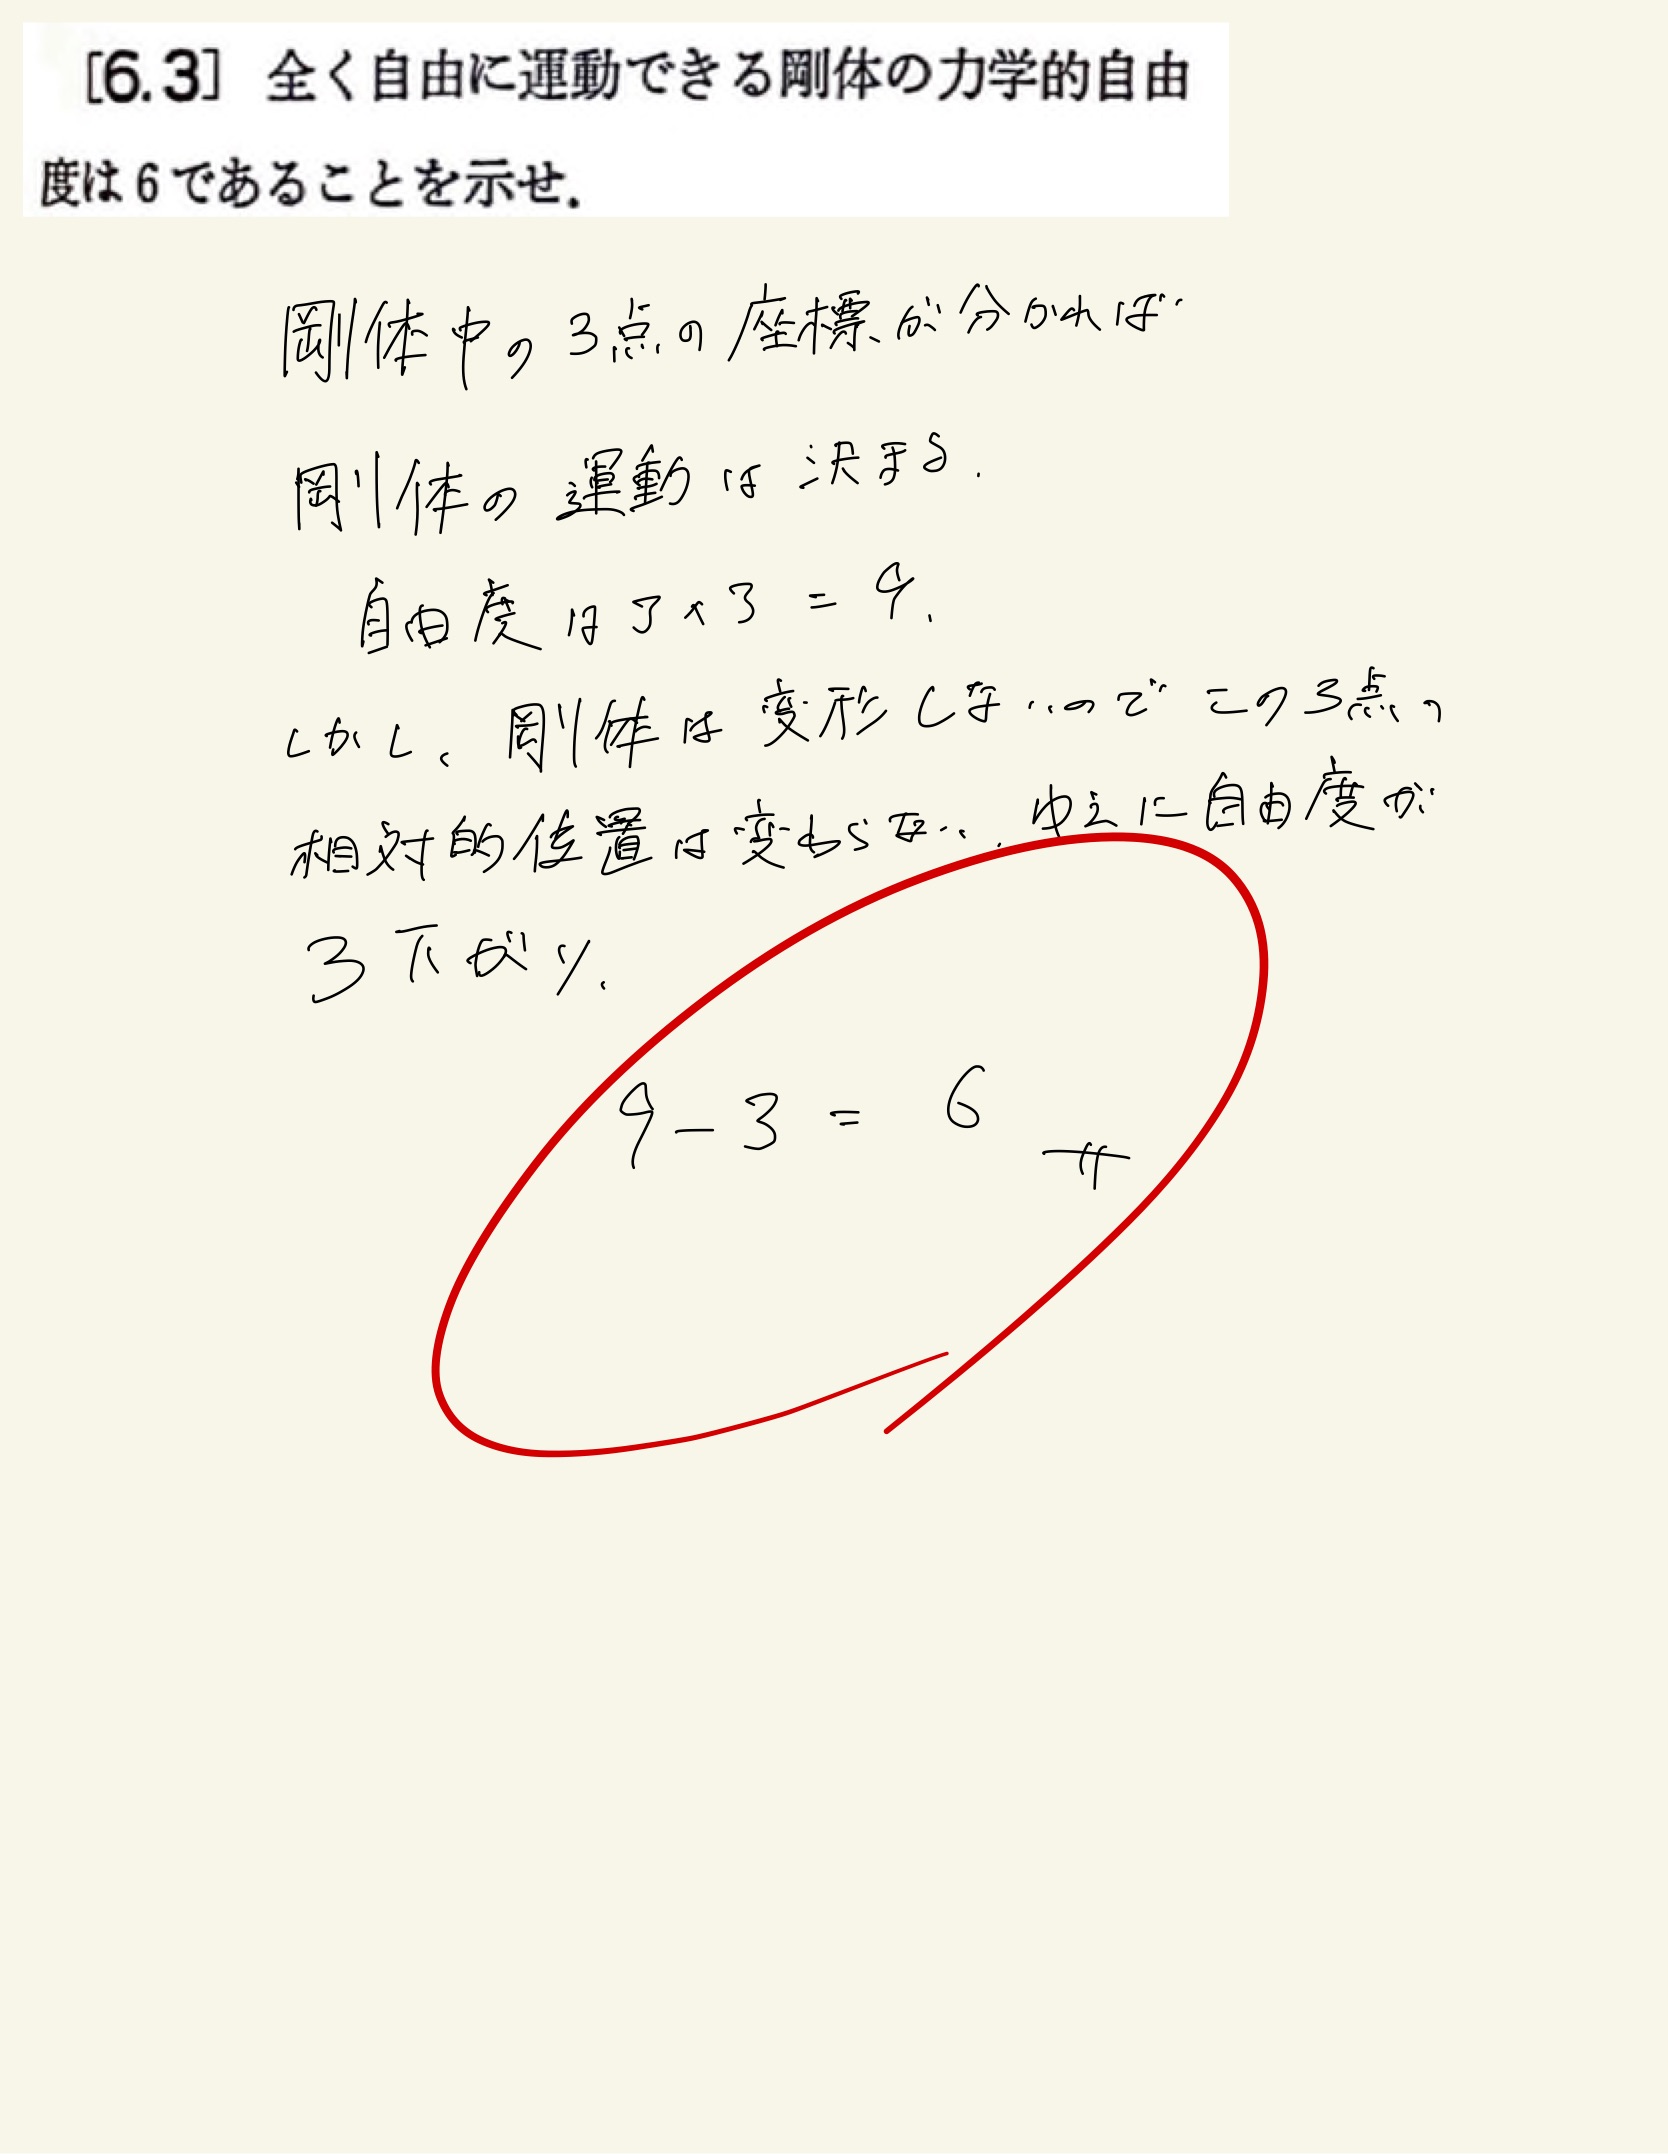 [6.3] 全く自由に運動できる剛体の力学的自由
度は6であることを示せ.
剛体中の3点の座標が分かれば
剛体の運動は決まる.
自由度は3×3=9.
しかし、剛体は変形しないのでこの3点の
相対的位置は変わらない. ゆえに自由度が
3下がり、
9-3=6